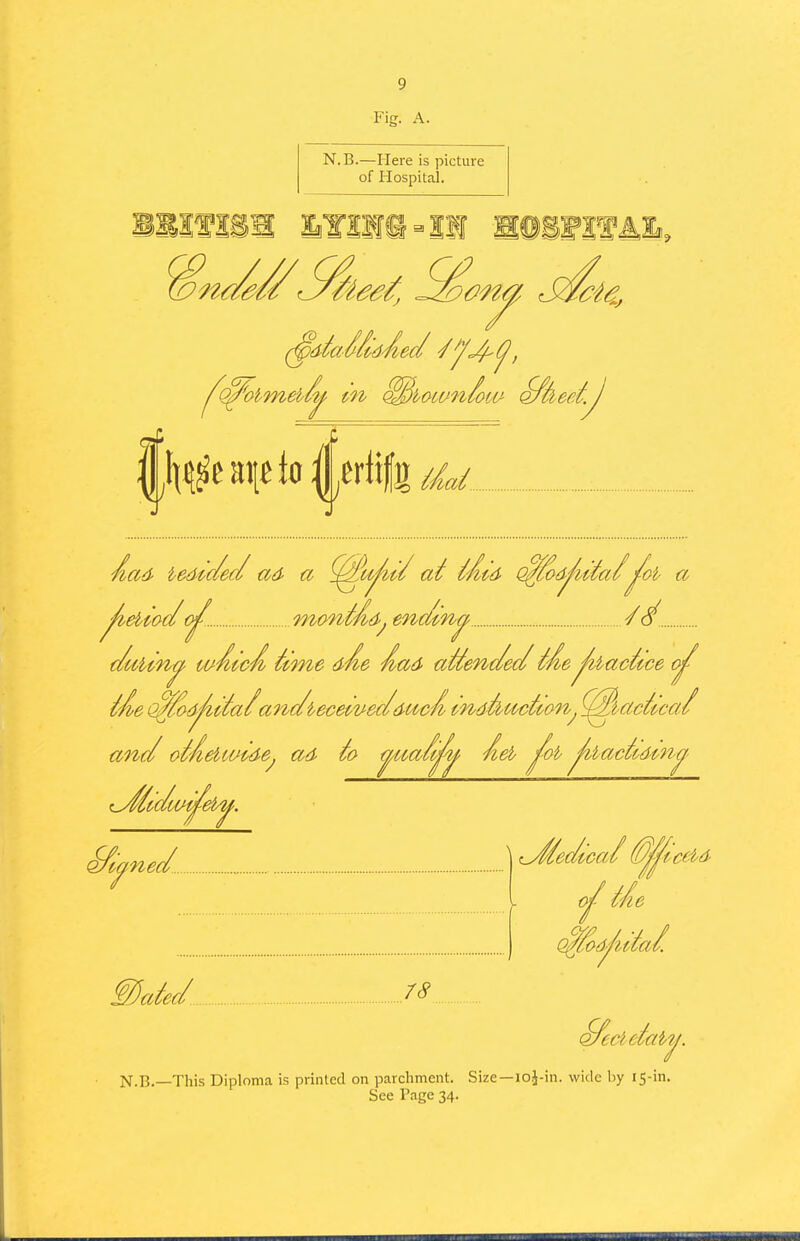 9
Fig. A.
N.B.—Here is picture
of Hospital.
BRITISH LYING-IN HOSPITAL,
Endell Street, Long Acre,
Established 1749,
(Formerly in Brownlow Street.)
These are to Certify that
has resided as a Pupil at this Hospital for a
period of months, ending 18
during which time she has attended the practice of
the Hospital and received such instruction, Practical
and otherwise, as to qualify her for practising
Midwifery.
Signed Medical Officers
of the
Hospital.
Dated 18
Secretary.
N.B.—This Diploma is printed on parchment. Size—10½-in. wide by 15-in.
See Page 34.